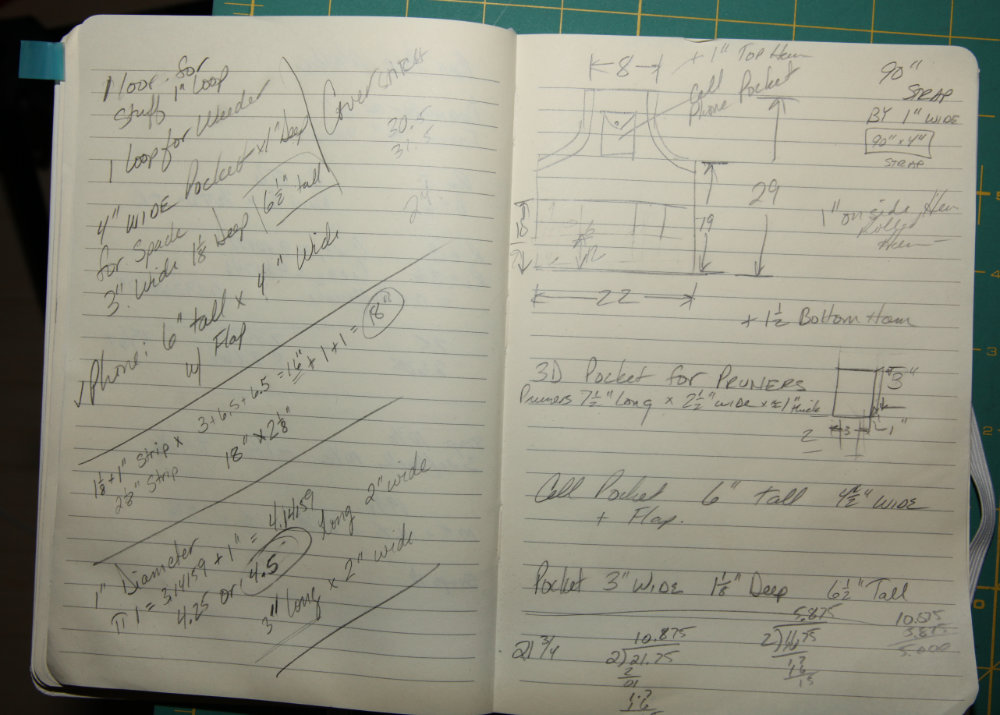 1 loop for
Stuff 1" Loop
1 Loop for Weeder
4" WIDE Pocket x 1" Deep
for Spade
3" Wide 1 1/8 Deep
6 1/2" tall
Cover Stitch
30.5
31.5
24
√ Phone: 6" tall x 4" Wide
w/ Flap
3 + 6.5 + 6.5 = 16" + 1 + 1 = 18"
1 1/8 + 1" Strip x
2 1/8" Strip
18" x 2 1/8
1" Diameter
π 1 = 3.14159 + 1" = 4.14159
4.25 or 4.5" Long 2" wide
3" long x 2" wide
8
+ 1" Top Hem
Cell
Phone Pocket
90"
STRAP
BY 1" WIDE
90" x 4"
STRAP
29
19
1" on side Hem
Roll
Hem
22
+ 1 1/2 Bottom Hem
3D Pocket for PRUNERS
Pruners 7 1/2" Long x 2 1/2" WIDE x 1" thick
3"
3
1"
2
Cell Pocket 6" tall 4 1/2" WIDE
+ Flap.
Pocket 3" WIDE 1 1/8" Deep 6 1/2" Tall
21 3/4
10.875
2)21.75
2
01
1.7
1.6
5.875
10.875
5.875
5.000